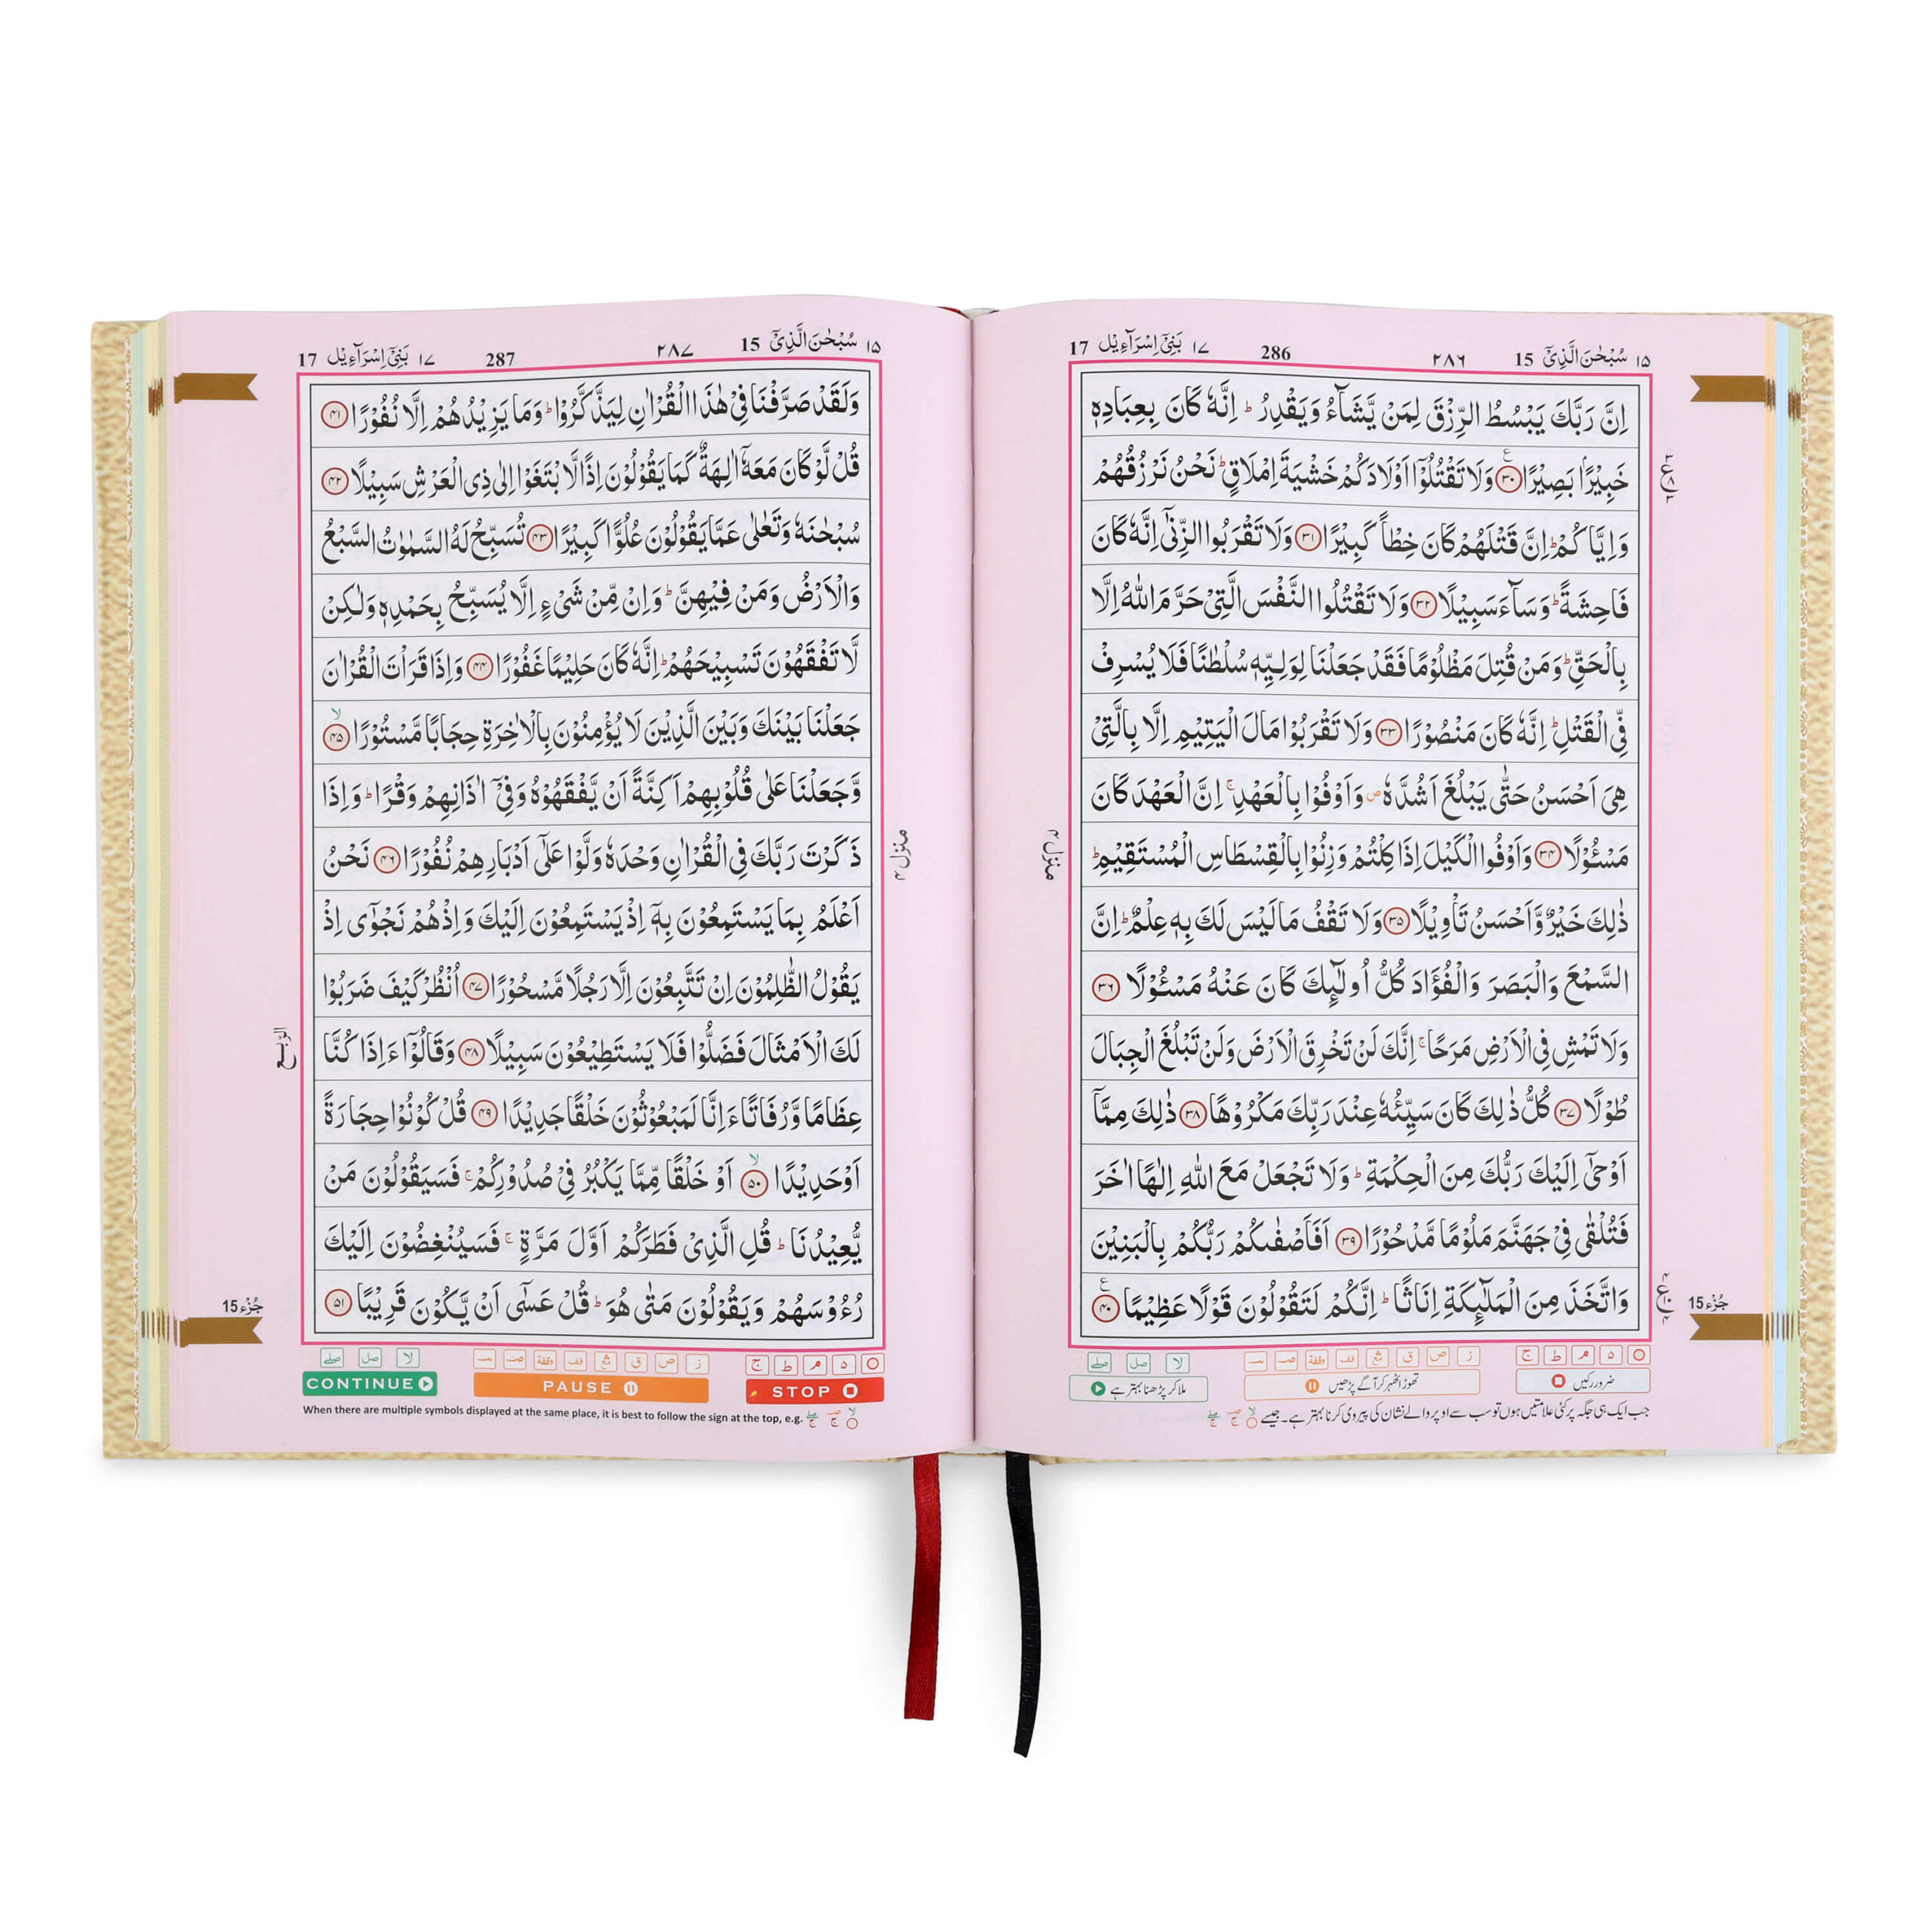 ١٥ سُبْحٰنَ الَّذِیْۤ 15 ٢٨٦ 286 ١٧ بَنِیْۤ اِسْرَآءِیْل 17
اِنَّ رَبَّكَ یَبْسُطُ الرِّزْقَ لِمَنْ یَّشَآءُ وَیَقْدِرُ ؕ اِنَّهٗ كَانَ بِعِبَادِهٖ
خَبِیْرًۢا بَصِیْرًا ٣٠ وَلَا تَقْتُلُوْۤا اَوْلَادَكُمْ خَشْیَةَ اِمْلَاقٍ ؕ نَحْنُ نَرْزُقُهُمْ
وَاِیَّاكُمْ ؕ اِنَّ قَتْلَهُمْ كَانَ خِطْاً كَبِیْرًا ٣١ وَلَا تَقْرَبُوا الزِّنٰۤی اِنَّهٗ كَانَ
فَاحِشَةً ؕ وَسَآءَ سَبِیْلًا ٣٢ وَلَا تَقْتُلُوا النَّفْسَ الَّتِیْ حَرَّمَ اللّٰهُ اِلَّا
بِالْحَقِّ ؕ وَمَنْ قُتِلَ مَظْلُوْمًا فَقَدْ جَعَلْنَا لِوَلِیِّهٖ سُلْطٰنًا فَلَا یُسْرِفْ
فِّی الْقَتْلِ ؕ اِنَّهٗ كَانَ مَنْصُوْرًا ٣٣ وَلَا تَقْرَبُوْا مَالَ الْیَتِیْمِ اِلَّا بِالَّتِیْ
هِیَ اَحْسَنُ حَتّٰی یَبْلُغَ اَشُدَّهٗ ۪ وَاَوْفُوْا بِالْعَهْدِ ۚ اِنَّ الْعَهْدَ كَانَ
مَسْـُٔوْلًا ٣٤ وَاَوْفُوا الْكَیْلَ اِذَا كِلْتُمْ وَزِنُوْا بِالْقِسْطَاسِ الْمُسْتَقِیْمِ ؕ
ذٰلِكَ خَیْرٌ وَّاَحْسَنُ تَاْوِیْلًا ٣٥ وَلَا تَقْفُ مَا لَیْسَ لَكَ بِهٖ عِلْمٌ ؕ اِنَّ
السَّمْعَ وَالْبَصَرَ وَالْفُؤَادَ كُلُّ اُولٰٓىِٕكَ كَانَ عَنْهُ مَسْـُٔوْلًا ٣٦
وَلَا تَمْشِ فِی الْاَرْضِ مَرَحًا ۚ اِنَّكَ لَنْ تَخْرِقَ الْاَرْضَ وَلَنْ تَبْلُغَ الْجِبَالَ
طُوْلًا ٣٧ كُلُّ ذٰلِكَ كَانَ سَیِّئُهٗ عِنْدَ رَبِّكَ مَكْرُوْهًا ٣٨ ذٰلِكَ مِمَّاۤ
اَوْحٰۤی اِلَیْكَ رَبُّكَ مِنَ الْحِكْمَةِ ؕ وَلَا تَجْعَلْ مَعَ اللّٰهِ اِلٰهًا اٰخَرَ
فَتُلْقٰی فِیْ جَهَنَّمَ مَلُوْمًا مَّدْحُوْرًا ٣٩ اَفَاَصْفٰىكُمْ رَبُّكُمْ بِالْبَنِیْنَ
وَاتَّخَذَ مِنَ الْمَلٰٓىِٕكَةِ اِنَاثًا ؕ اِنَّكُمْ لَتَقُوْلُوْنَ قَوْلًا عَظِیْمًا ٤٠
منزل ٤
جُزْء 15
ج ط م ۵ ز ص ق قف وقفة لا صل صلے
ضرور رکیں
تھوڑا ٹھہر کر آگے پڑھیں
ملا کر پڑھنا بہتر ہے
جب ایک ہی جگہ پر کئی علامتیں ہوں تو سب سے اوپر والے نشان کی پیروی کرنا بہتر ہے۔ جیسے
١٥ سُبْحٰنَ الَّذِیْۤ 15 ٢٨٧ 287 ١٧ بَنِیْۤ اِسْرَآءِیْل 17
وَلَقَدْ صَرَّفْنَا فِیْ هٰذَا الْقُرْاٰنِ لِیَذَّكَّرُوْا ؕ وَمَا یَزِیْدُهُمْ اِلَّا نُفُوْرًا ٤١
قُلْ لَّوْ كَانَ مَعَهٗۤ اٰلِهَةٌ كَمَا یَقُوْلُوْنَ اِذًا لَّابْتَغَوْا اِلٰی ذِی الْعَرْشِ سَبِیْلًا ٤٢
سُبْحٰنَهٗ وَتَعٰلٰی عَمَّا یَقُوْلُوْنَ عُلُوًّا كَبِیْرًا ٤٣ تُسَبِّحُ لَهُ السَّمٰوٰتُ السَّبْعُ
وَالْاَرْضُ وَمَنْ فِیْهِنَّ ؕ وَاِنْ مِّنْ شَیْءٍ اِلَّا یُسَبِّحُ بِحَمْدِهٖ وَلٰكِنْ
لَّا تَفْقَهُوْنَ تَسْبِیْحَهُمْ ؕ اِنَّهٗ كَانَ حَلِیْمًا غَفُوْرًا ٤٤ وَاِذَا قَرَاْتَ الْقُرْاٰنَ
جَعَلْنَا بَیْنَكَ وَبَیْنَ الَّذِیْنَ لَا یُؤْمِنُوْنَ بِالْاٰخِرَةِ حِجَابًا مَّسْتُوْرًا ٤٥ ۙ
وَّجَعَلْنَا عَلٰی قُلُوْبِهِمْ اَكِنَّةً اَنْ یَّفْقَهُوْهُ وَفِیْۤ اٰذَانِهِمْ وَقْرًا ؕ وَاِذَا
ذَكَرْتَ رَبَّكَ فِی الْقُرْاٰنِ وَحْدَهٗ وَلَّوْا عَلٰۤی اَدْبَارِهِمْ نُفُوْرًا ٤٦ نَحْنُ
اَعْلَمُ بِمَا یَسْتَمِعُوْنَ بِهٖۤ اِذْ یَسْتَمِعُوْنَ اِلَیْكَ وَاِذْ هُمْ نَجْوٰۤی اِذْ
یَقُوْلُ الظّٰلِمُوْنَ اِنْ تَتَّبِعُوْنَ اِلَّا رَجُلًا مَّسْحُوْرًا ٤٧ اُنْظُرْ كَیْفَ ضَرَبُوْا
لَكَ الْاَمْثَالَ فَضَلُّوْا فَلَا یَسْتَطِیْعُوْنَ سَبِیْلًا ٤٨ وَقَالُوْۤا ءَاِذَا كُنَّا
عِظَامًا وَّرُفَاتًا ءَاِنَّا لَمَبْعُوْثُوْنَ خَلْقًا جَدِیْدًا ٤٩ قُلْ كُوْنُوْا حِجَارَةً
اَوْ حَدِیْدًا ٥٠ ۙ اَوْ خَلْقًا مِّمَّا یَكْبُرُ فِیْ صُدُوْرِكُمْ ۚ فَسَیَقُوْلُوْنَ مَنْ
یُّعِیْدُنَا ؕ قُلِ الَّذِیْ فَطَرَكُمْ اَوَّلَ مَرَّةٍ ۚ فَسَیُنْغِضُوْنَ اِلَیْكَ
رُءُوْسَهُمْ وَیَقُوْلُوْنَ مَتٰی هُوَ ؕ قُلْ عَسٰۤی اَنْ یَّكُوْنَ قَرِیْبًا ٥١
منزل ٤
الربع
جُزْء 15
ج ط م ۵ ز ص ق قف وقفة لا صل صلے
CONTINUE PAUSE STOP
When there are multiple symbols displayed at the same place, it is best to follow the sign at the top, e.g.